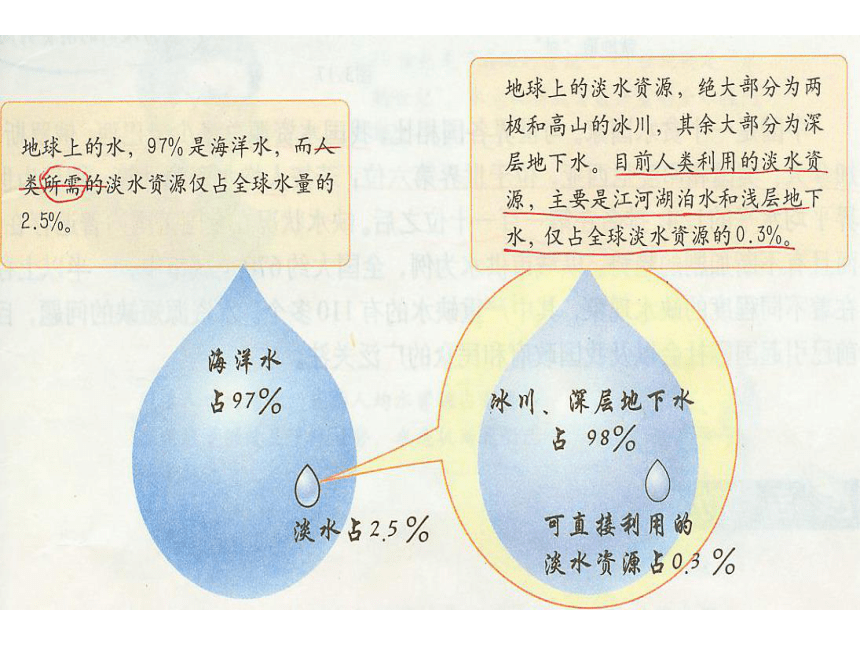 地球上的水，97%是海洋水，而人
类所需的淡水资源仅占全球水量的
2.5%。
地球上的淡水资源，绝大部分为两
极和高山的冰川，其余大部分为深
层地下水。目前人类利用的淡水资
源，主要是江河湖泊水和浅层地下
水，仅占全球淡水资源的0.3%。
海洋水
占97%
淡水占2.5%
冰川、深层地下水
占 98%
可直接利用的
淡水资源占0.3%